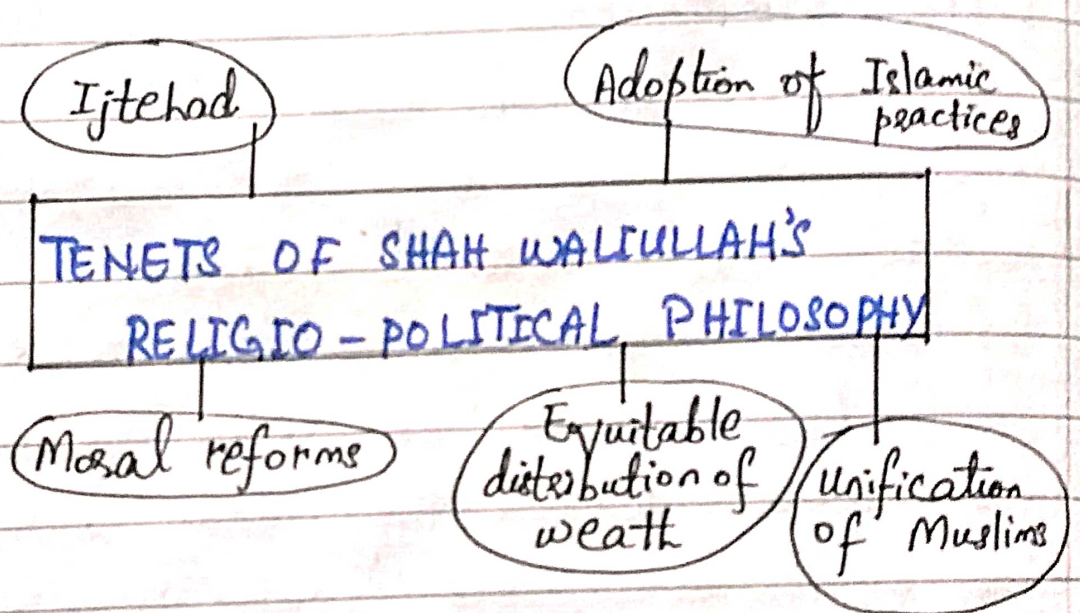 Ijtehad
Adoption of Islamic
practices
TENETS OF SHAH WALIULLAH'S
RELIGIO-POLITICAL PHILOSOPHY
Moral reforms
Equitable
distribution of
weath
Unification
of Muslims